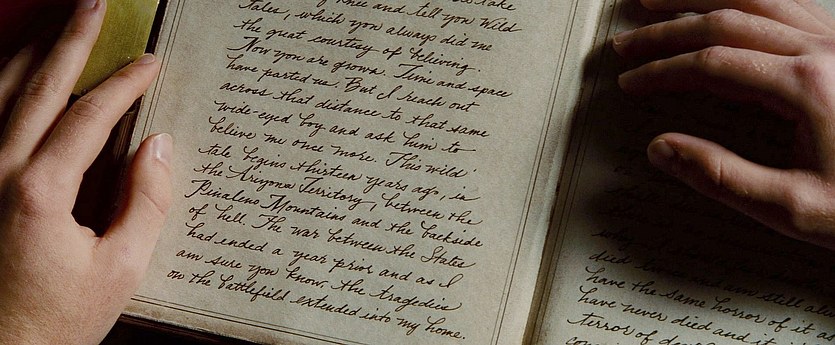 knee and tell you wild
tales, which you always did me
the great courtesy of believing.
Now you are grown. Time and space
have parted us. But I reach out
across that distance to that same
wide-eyed boy and ask him to
believe me once more. This wild
tale begins thirteen years ago, in
the Arizona Territory, between the
Pinaleno Mountains and the backside
of hell. The war between the States
had ended a year prior and as I
am sure you know, the tragedies
on the battlefield extended into my home.
take
died
am still
have the same horror of it as
have never died and it is
terror of